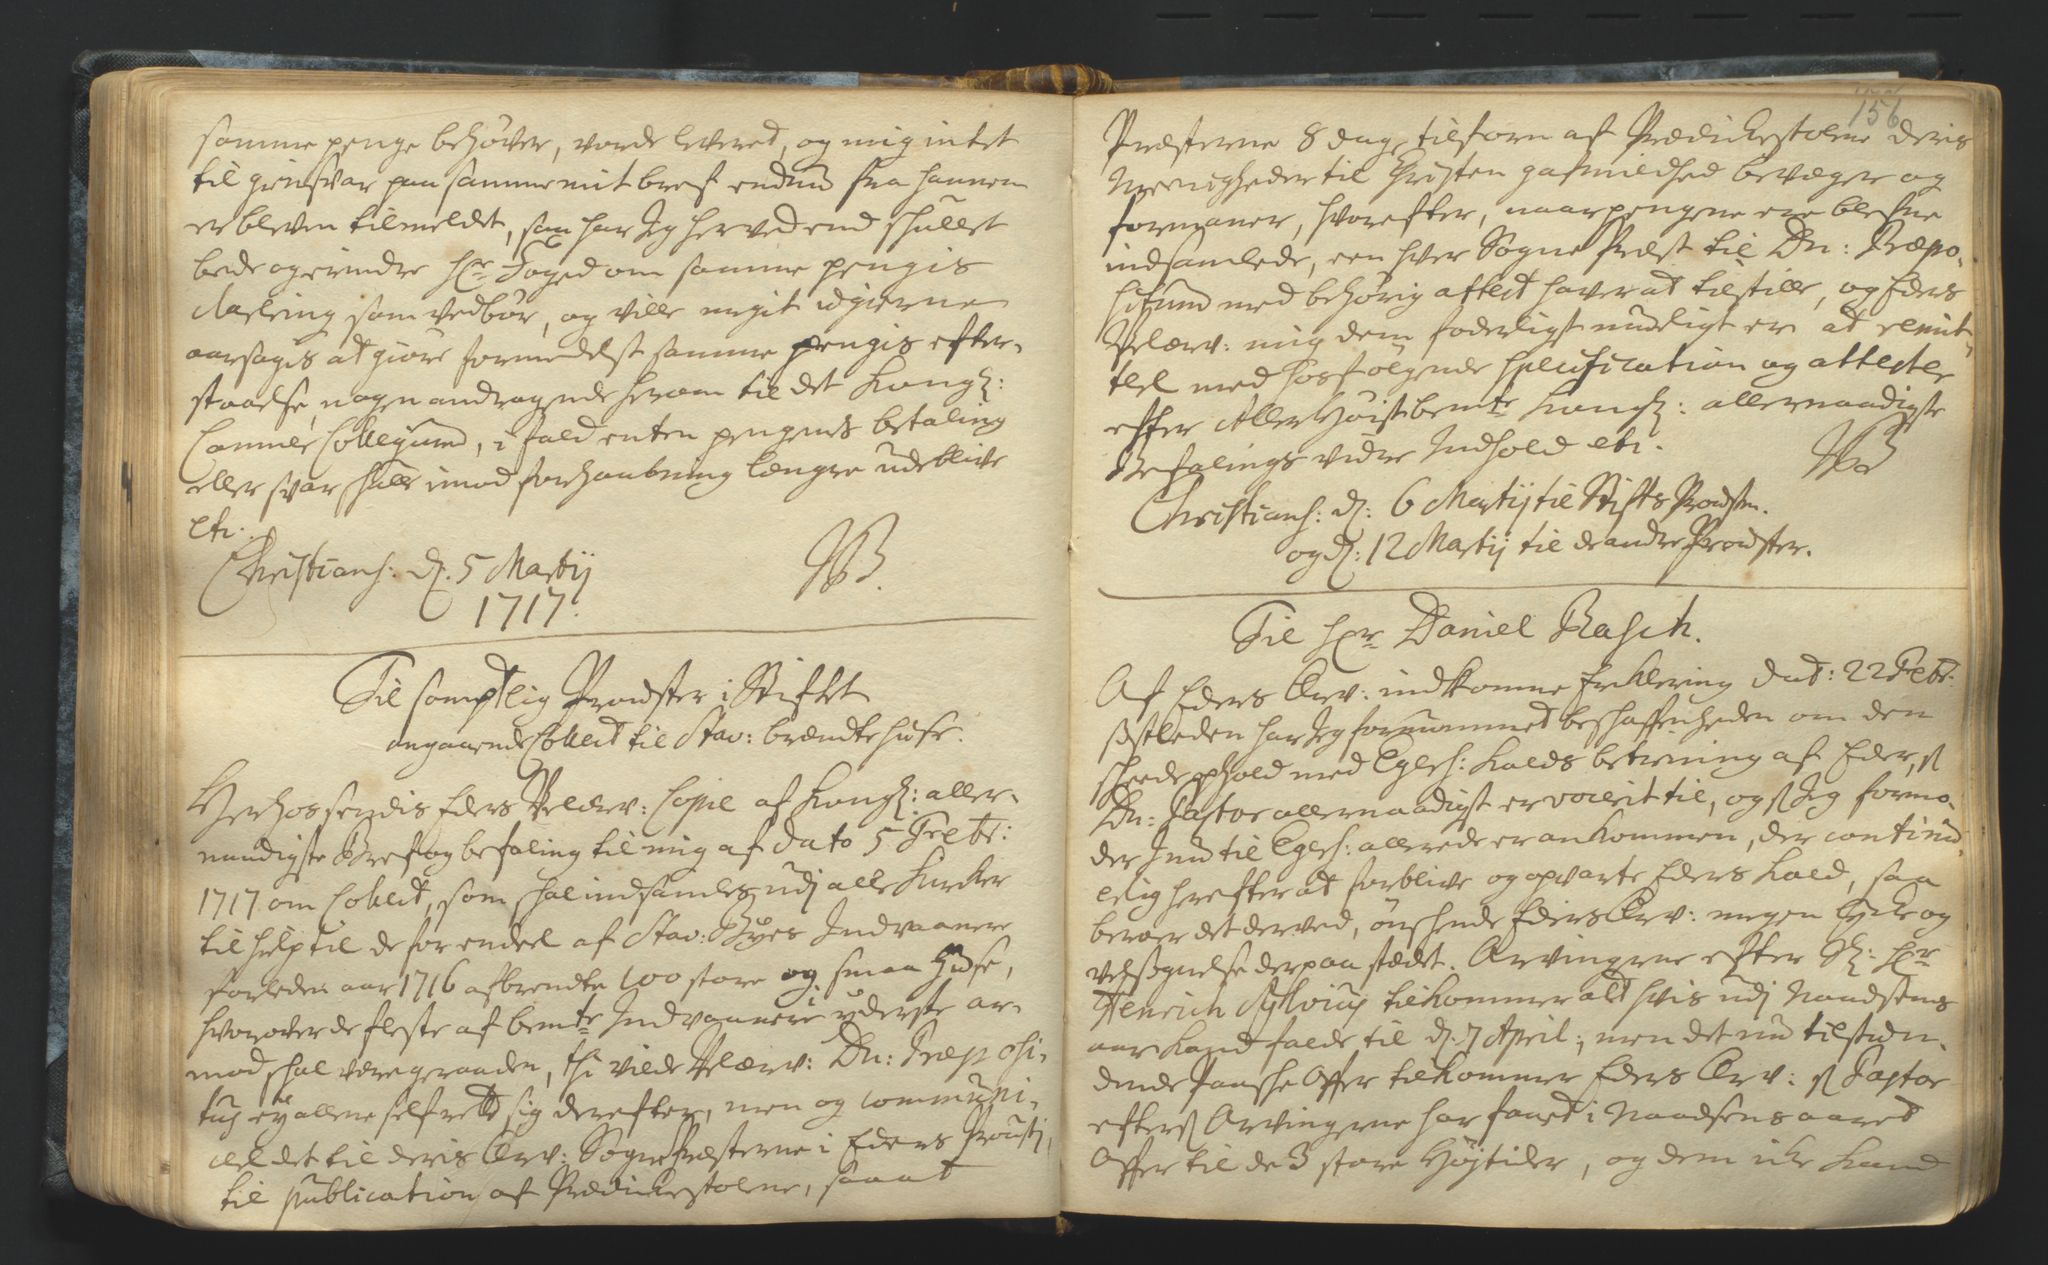 samme penge behøver, vorde leveret, og mig intet
til giensvar paa samme mit bref endnu fra hannem
er bleven tilmeldet, saa har Jeg herved end skullet
bede og erindre Hr. Foged om samme pengis
clarering som vedbør, og ville mig it ugierne
aarsagis at giøre formedelst samme pengis efter-
staaelse, nogen andragende herom til det Kongl:
Cammer Collegium, i fald enten pengenis betaling
eller svar skulle imod forhaabning længre udeblive
etc.
Christians: d. 5 Martij
1717.
Til samptlig Provster i Stiftet
angaaende Collect til Stav: brændte huse.
Herhos sendis Eders Velærv: Copie af Kongl: aller-
naadigste Bref og befaling til mig af dato 5 Febr:
1717 om Collect, som skal indsamles udj alle Kircker
til hielp til de for en deel af Stav: Byes Indvaanere
forleden aar 1716 afbrendte 100 store og smaa Huse,
hvorover de fleste af bemte Indvaanere i yderste ar-
mod skal være geraaden, thi vilde Velærv: Dn: Præposi-
tus ey allene self rette sig derefter, men og communi-
cere det til deris Ærv: Sogne Præsterne i Eders Provstj,
til publication af Prædickestolene, saa at
156
Præsterne 8 dage tilforn af Prædickestolene deris
Meenigheder til Christen gafmildhed bevæger og
formaner, hvorefter, naar pengene ere blefne
indsamlede, een hver Sogne Præst til Dn: Præpo-
situm med behørig attest haver at tilstille, og Eders
Velærv: mig dem foderligst mueligt er at remit-
tere med hosfølgende specification og attester
efter Aller Høistbemte Kongl: allernaadigste
Befalings vidre Indhold etc.
Christians: d: 6 Martij til Stifts Provsten.
og d: 12 Martij til de andre Provster.
Til Hr. Daniel Rasch.
Af Eders Ærv: indkomne Erklering dat: 22 Febr:
sistleden har Jeg fornummet beskaffenheden om den
skeede ophold med Egers: Kalds betiening af Eder,
Dn: Pastor allernaadigst er voceret til, og Jeg formo-
der I nu til Egers: allerede er ankommen, der continu-
erlig herefter at forblive og opvarte Eders Kald, saa
beroer det derved, ønskende Eders Ærv: megen lycke og
velsignelse der paa stædet. Arvingerne efter Sl: Hr.
Henrich Sylvius tilkommer alt hvis udj Naadsens
aar kand falde til d: 7 April:, men det nu tilstun-
dende Paaske Offer tilkommer Eders Ærv: Pastor
efter Arvingerne har faaet i Naadsens aaret
Offer til de 3 store Højtider, og dem icke kand